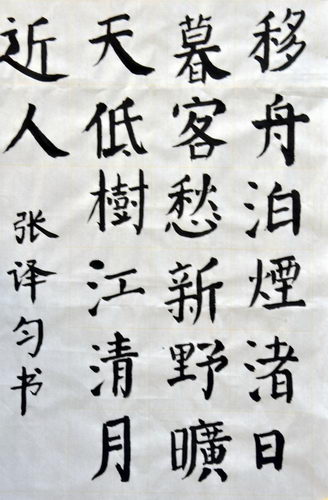 移舟泊煙渚日
暮客愁新野曠
天低樹江清月
近人
张译匀书